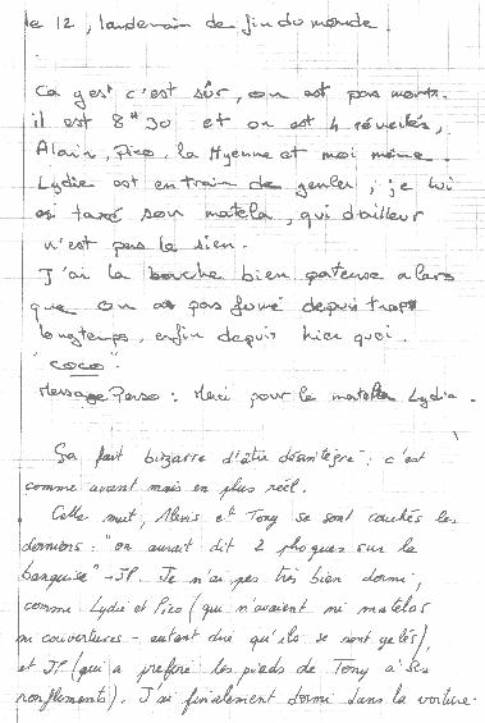 le 12, landemain de fin du monde
Ca yest c'est sûr, on est pas morts.
il est 8H30 et on est 4 réveillés,
Alain, Pico, la Hyenne et moi même.
Lydie est en train de gueuler ; je lui
ai taxé son matela, qui d'ailleur
n'est pas le sien.
J'ai la bouche bien pateuse alors
que on a pas fumé depuis trop
longtemps, enfin depuis hier quoi.
"coco".
Message Perso : Merci pour le matella Lydia.
Ça fait bizarre d'être désintégré ; c'est
comme avant mais en plus réel.
Cette nuit, Alexis et Tony se sont couchés les
derniers : "on aurait dit 2 phoques sur la
banquise" - JP. Je n'ai pas très bien dormi,
comme Lydie et Pico (qui n'avaient ni matelas
ni couvertures - autant dire qu'ils se sont gelés),
et JP (qui a préféré les pieds de Tony à ses
ronflements). J'ai finalement dormi dans la voiture.